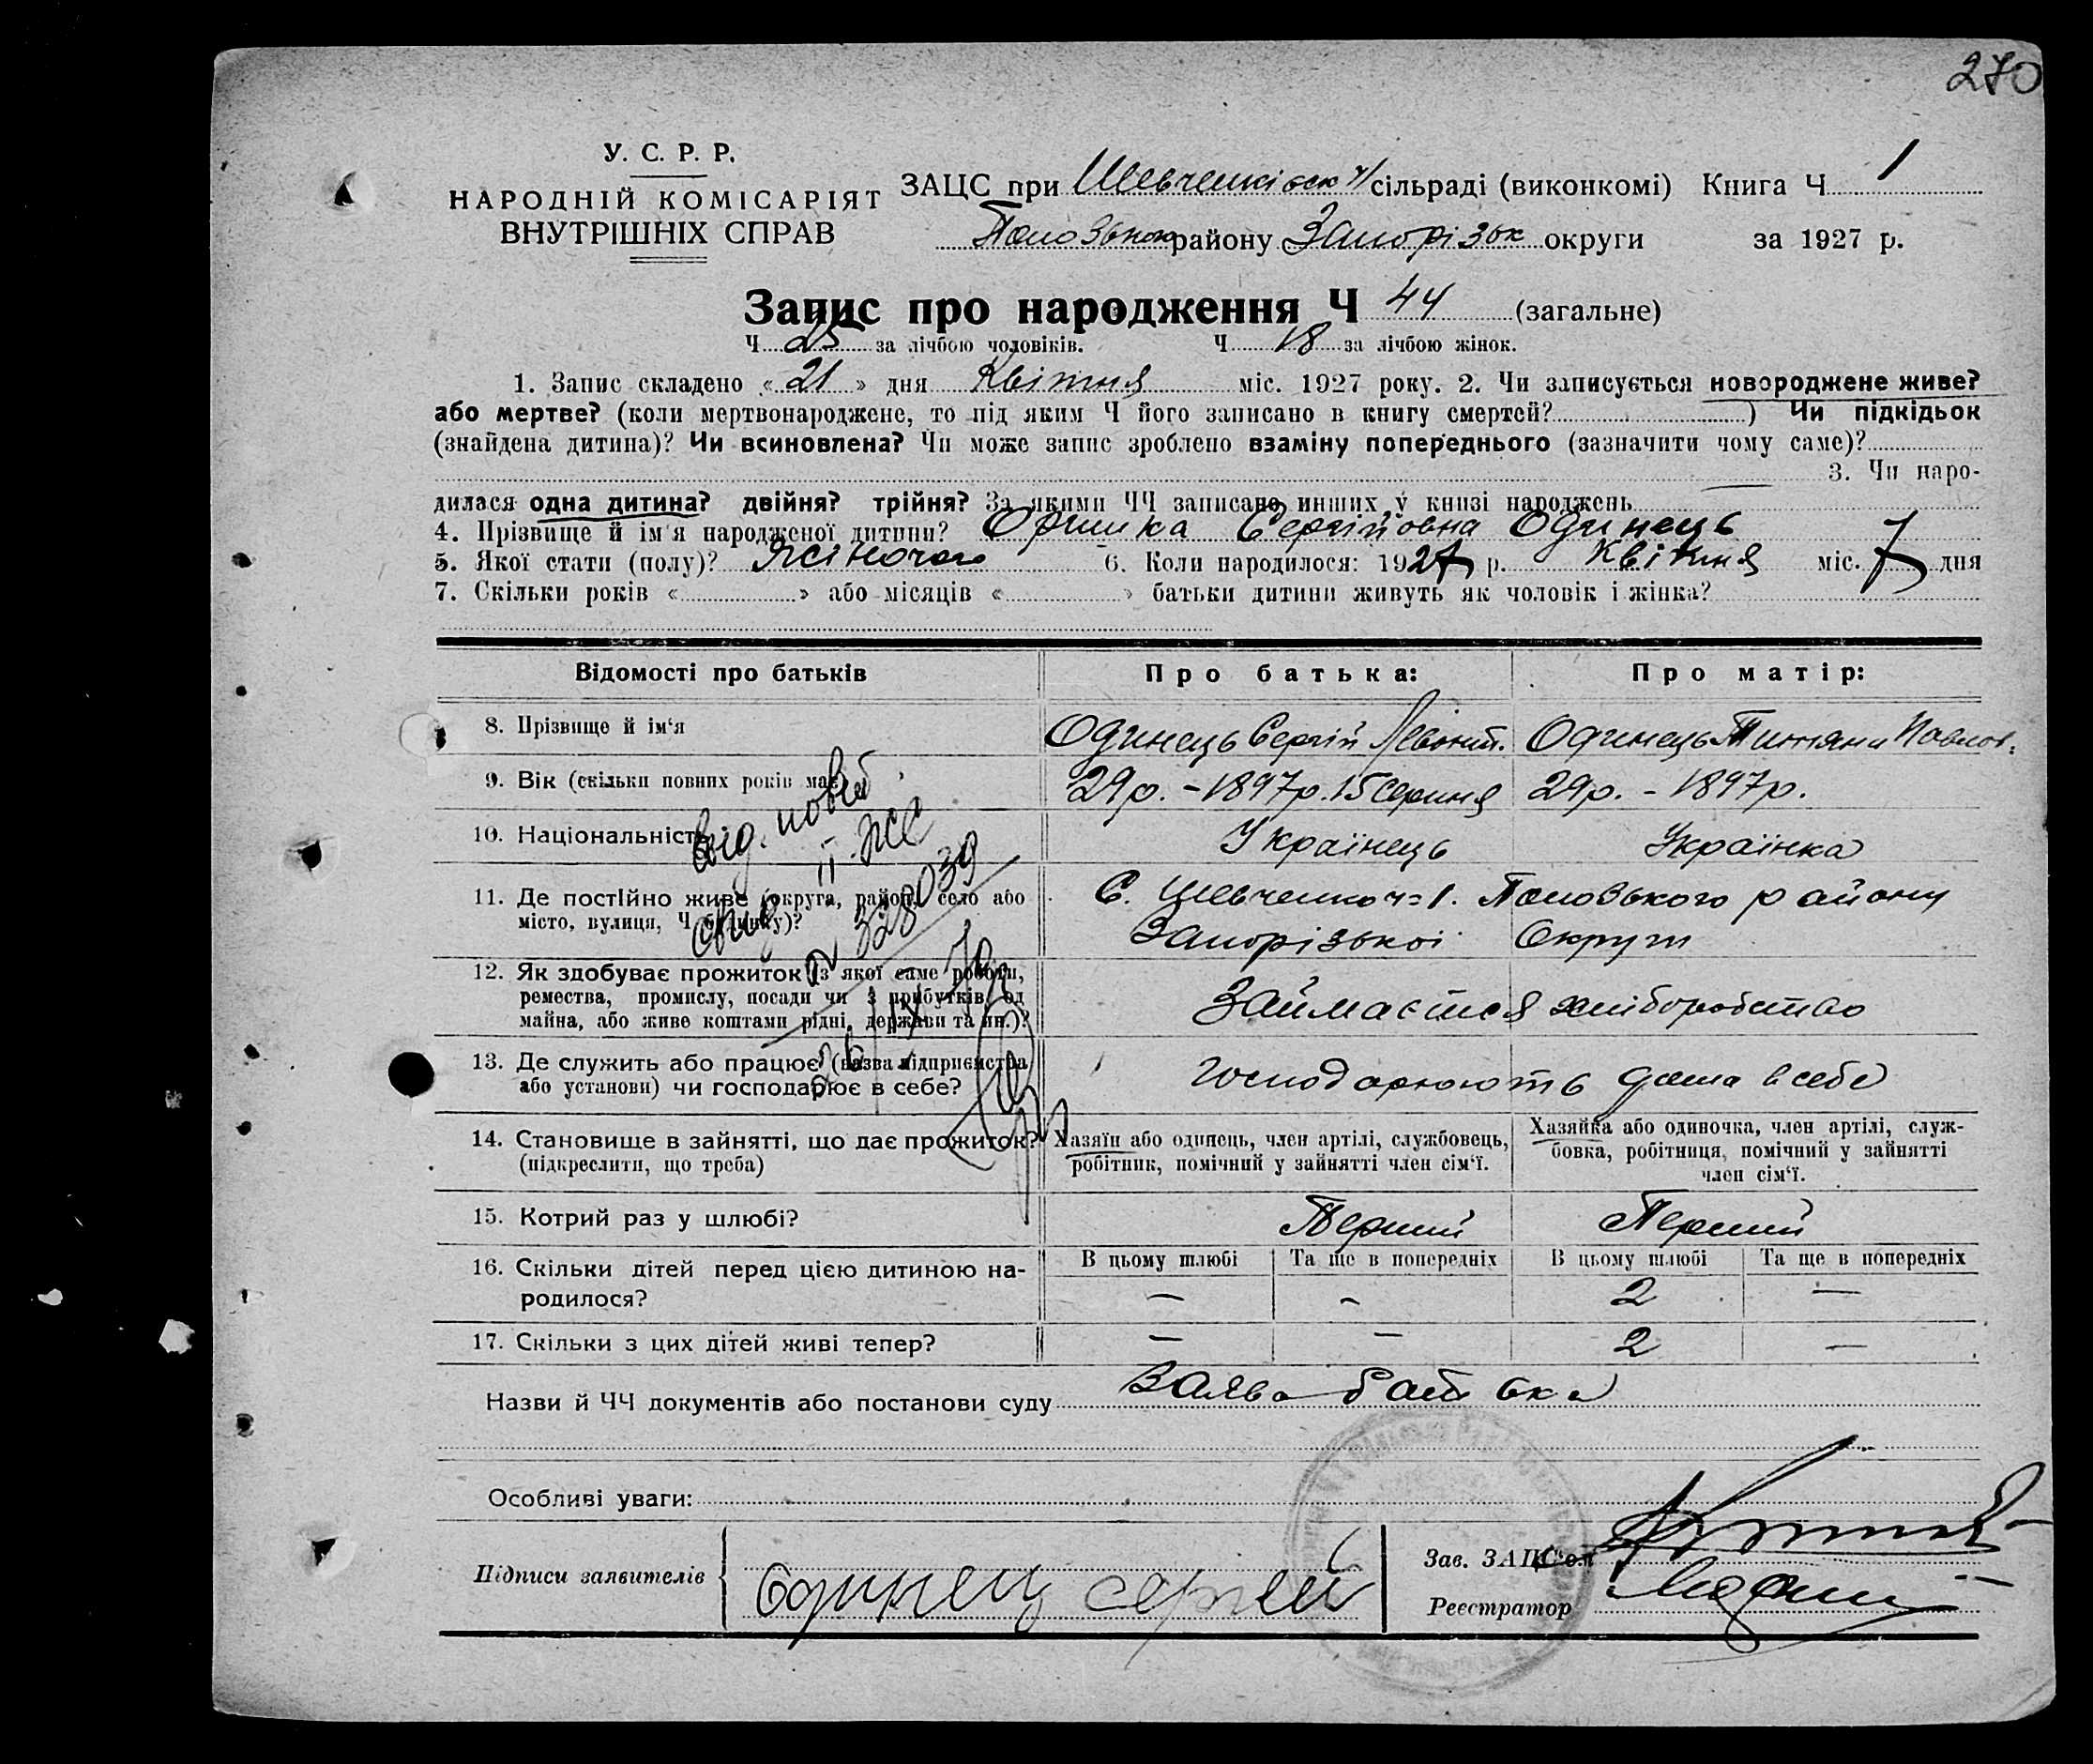 270
У. С. Р. Р.
НАРОДНІЙ КОМІСАРІЯТ
ВНУТРІШНІХ СПРАВ
ЗАЦС при Шевченківськ сільраді (виконкомі) Книга Ч 1
району Запорізьк округи за 1927 р.
Запис про народження Ч 44 (загальне)
Ч 25 за лічбою чоловіків. Ч 18 за лічбою жінок.
1. Запис складено « 21 » дня Квітня міс. 1927 року. 2. Чи записується новороджене живе?
або мертве? (коли мертвонароджене, то під яким Ч його записано в книгу смертей? ) Чи підкідьок
(знайдена дитина)? Чи всиновлена? Чи може запис зроблено взаміну попереднього (зазначити чому саме)?
3. Чи наро-
дилася одна дитина? двійня? трійня? За якими ЧЧ записано инших у книзі народжень
4. Прізвище й ім'я народженої дитини? Оришка Сергійовна Одинець
5. Якої стати (полу)? Жіночого 6. Коли народилося: 1927 р. Квітня міс. 7 дня
7. Скільки років « » або місяців « » батьки дитини живуть як чоловік і жінка?
Відомості про батьків Про батька: Про матір:
8. Прізвище й ім'я Одинець Сергій Одинець Титяна Павлов.
9. Вік (скільки повних років має) 29р. - 1897р. 15 серпня 29р. - 1897р.
10. Національність Українець Українка
11. Де постійно живе (округа, район, село або
місто, вулиця, Ч будинку)?
С. Шевченко ч=1. Пологівського району
Запорізької Округи
12. Як здобуває прожиток (з якої саме роботи,
ремества, промислу, посади чи з прибутків од
майна, або живе коштами рідні, держави та ин.)?
Займається хліборобство
13. Де служить або працює (назва підприємства
або установи) чи господарює в себе?
Господарюють дома в себе
14. Становище в зайнятті, що дає прожиток?
(підкреслити, що треба)
Хазяїн або одинець, член артілі, службовець,
робітник, помічний у зайнятті член сім'ї.
Хазяйка або одиночка, член артілі, служ-
бовка, робітниця, помічний у зайнятті
член сім'ї.
15. Котрий раз у шлюбі? Перший Перший
16. Скільки дітей перед цією дитиною на-
родилося?
В цьому шлюбі Та ще в попередніх В цьому шлюбі Та ще в попередніх
— - 2 —
17. Скільки з цих дітей живі тепер? — — 2 —
Вид. повт
II-ЖС
свид
№ 328039
Назви й ЧЧ документів або постанови суду Заява батька
Особливі уваги:
Підписи заявителів Одинец Сергей
Зав. ЗАЦС'ом
Реєстратор